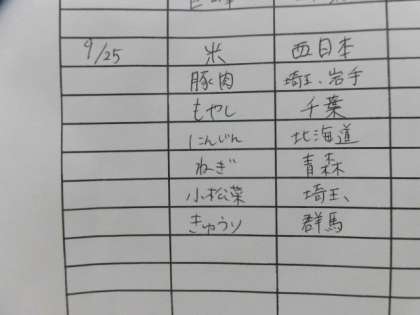 9/25 米 西日本
豚肉 埼玉、岩手
もやし 千葉
にんじん 北海道
ねぎ 青森
小松菜 埼玉、
きゅうり 群馬